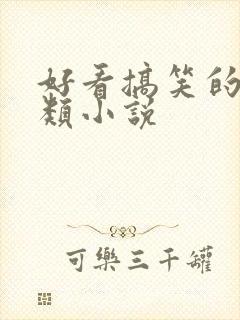 好看搞笑的
類小說
可樂三千罐